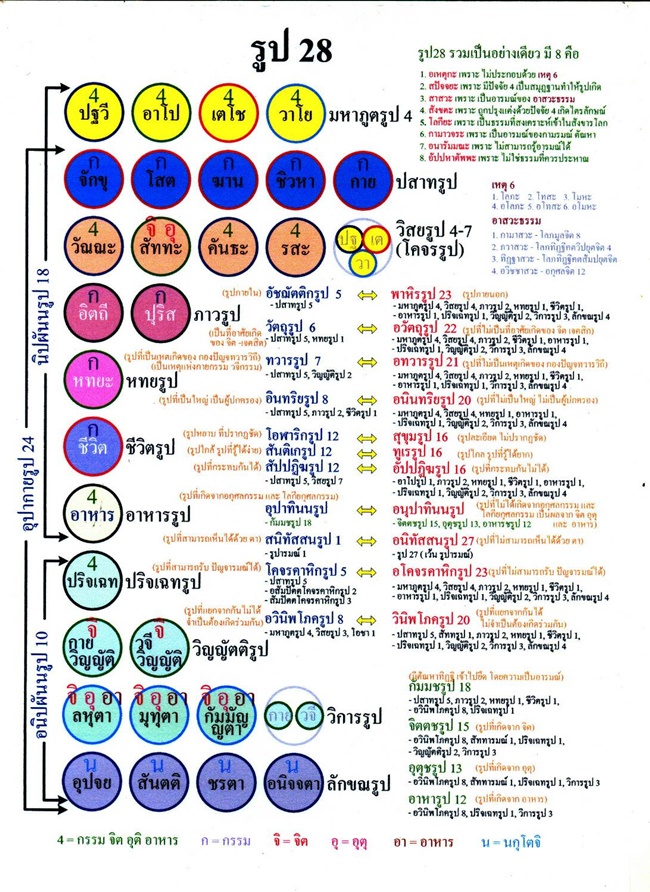 รูป 28
รูป28 รวมเป็นอย่างเดียว มี 8 คือ
1. อเหตุกะ เพราะ ไม่ประกอบด้วย เหตุ 6
2. สปัจจยะ เพราะ มีปัจจัย 4 เป็นสมุฏฐานทำให้รูปเกิด
3. สาสวะ เพราะ เป็นอารมณ์ของ อาสวะธรรม
4. สังขตะ เพราะ ถูกปรุงแต่งด้วยปัจจัย 4 เกิดไตรลักษณ์
5. โลกียะ เพราะ เป็นธรรมที่สงเคราะห์เข้าในสังขารโลก
6. กามาวจระ เพราะ เป็นอารมณ์ของกามรมณ์ ตัณหา
7. อนารัมมณะ เพราะ ไม่สามารถรู้อารมณ์ได้
8. อัปปหาตัพพะ เพราะ ไม่ใช่ธรรมที่ควรประหาณ
4 4 4 4
ปฐวี อาโป เตโช วาโย มหาภูตรูป 4
ก ก ก ก ก
จักขุ โสต ฆาน ชิวหา กาย ปสาทรูป
เหตุ 6
1. โลภะ 2. โทสะ 3. โมหะ
4. อโลภะ 5. อโทสะ 6. อโมหะ
อาสวะธรรม
1. กามาสวะ - โลภมูลจิต 8
2. ภวาสวะ - โลภทิฏฐิคตวิปยุตจิต 4
3. ทิฏฐาสวะ - โลภทิฏฐิคตสัมปยุตจิต
4. อวิชชาสวะ - อกุศลจิต 12
4 จิ อุ 4 4
วัณณะ สัททะ คันธะ รสะ ปฐ เต วา วิสยรูป 4-7
(โคจรรูป)
ก ก
อิตถี ปุริส ภาวรูป
(รูปภายใน) อัชฌัตติกรูป 5 พาหิรรูป 23 (รูปภายนอก)
- ปสาทรูป 5
- มหาภูตรูป 4, วิสยรูป 4, ภาวรูป 2, หทยรูป 1, ชีวิตรูป 1,
- อาหารรูป 1, ปริจเฉทรูป 1, วิญญัติรูป 2, วิการรูป 3, ลักขณรูป 4
(เป็นที่อาศัยเกิดของ จิต -เจตสิก) วัตถุรูป 6 อวัตถุรูป 22 (รูปที่ไม่เป็นที่อาศัยเกิดของ จิต เจตสิก)
- ปสาทรูป 5, หทยรูป 1
- มหาภูตรูป 4, วิสยรูป 4, ภาวรูป 2, ชีวิตรูป 1, อาหารรูป 1,
- ปริจเฉทรูป 1, วิญญัติรูป 2, วิการรูป 3, ลักขณรูป 4
ก
หทยะ หทยรูป
(รูปที่เป็นเหตุเกิดของ กองปัญจทวารวิถี)
(เป็นเหตุแห่งกายกรรม วจีกรรม)
ทวารรูป 7 อทวารรูป 21 (รูปที่ไม่เป็นเหตุเกิดของ กองปัญจทวารวิถี)
- ปสาทรูป 5, วิญญัติรูป 2
- มหาภูตรูป 4, วิสยรูป 4, ภาวรูป 2, หทยรูป 1, ชีวิตรูป 1,
- อาหารรูป 1, ปริจเฉทรูป 1, วิการรูป 3, ลักขณรูป 4
(รูปที่เป็นใหญ่ เป็นผู้ปกครอง) อินทริยรูป 8 อนินทริยรูป 20 (รูปที่ไม่เป็นใหญ่ ไม่เป็นผู้ปกครอง)
- ปสาทรูป 5, ภาวรูป 2, ชีวิตรูป 1
- มหาภูตรูป 4, วิสยรูป 4, หทยรูป 1, อาหารรูป 1,
- ปริจเฉทรูป 1, วิญญัติรูป 2, วิการรูป 3, ลักขณรูป 4
ก
ชีวิต ชีวิตรูป
(รูปหยาบ ที่ปรากฏชัด) โอฬาริกรูป 12 สุขุมรูป 16 (รูปละเอียด ไม่ปรากฏชัด)
(รูปใกล้ รูปที่รู้ได้ง่าย) สันติเกรูป 12 ทูเรรูป 16 (รูปไกล รูปที่รู้ได้ยาก)
(รูปที่กระทบกันได้) สัปปฏิฆรูป 12 อัปปฏิฆรูป 16 (รูปที่กระทบกันไม่ได้)
- ปสาทรูป 5, วิสยรูป 7
- อาโปรูป 1, ภาวรูป 2, หทยรูป 1, ชีวิตรูป 1, อาหารรูป 1,
- ปริจเฉทรูป 1, วิญญัติรูป 2, วิการรูป 3, ลักขณรูป 4
4
อาหาร อาหารรูป
(รูปที่เกิดจากอกุศลกรรม และ โลกียกุศลกรรม)
อุปาทินนรูป อนุปาทินนรูป (รูปที่ไม่ได้เกิดจากอกุศลกรรม และ โลกียกุศลกรรม เป็นผลจาก จิต อุตุ และ อาหาร)
- กัมมชรูป 18 - จิตตชรูป 15, อุตุชรูป 13, อาหารชรูป 12
(รูปที่สามารถเห็นได้ด้วย ตา) สนิทัสสนรูป 1 อนิทัสสนรูป 27 (รูปที่ไม่สามารถเห็นได้ด้วย ตา)
- รูปารมณ์ 1 - รูป 27 (เว้น รูปารมณ์)
4
ปริจเฉท ปริจเฉทรูป
(รูปที่สามารถรับ ปัญจารมณ์ได้) โคจรคาหิกรูป 5 อโคจรคาหิกรูป 23 (รูปที่ไม่สามารถรับ ปัญจารมณ์ได้)
- ปสาทรูป 5
- อสัมปัตตโคจรคาหิกรูป 2
- สัมปัตตโคจรคาหิกรูป 3
- มหาภูตรูป 4, วิสยรูป 4, ภาวรูป 2, หทยรูป 1, ชีวิตรูป 1,
- อาหารรูป 1, ปริจเฉทรูป 1, วิญญัติรูป 2, วิการรูป 3, ลักขณรูป 4
(รูปที่แยกจากกันไม่ได้ จำเป็นต้องเกิดร่วมกัน) อวินิพโภครูป 8 วินิพโภครูป 20 (รูปที่แยกจากกันได้ ไม่จำเป็นต้องเกิดร่วมกัน)
- มหาภูตรูป 4, วิสยรูป 3, โอชา 1
- ปสาทรูป 5, สัททรูป 1, ภาวรูป 2, หทยรูป 1, ชีวิตรูป 1,
- ปริจเฉทรูป 1, วิญญัติรูป 2, วิการรูป 3, ลักขณรูป 4
จิ จิ
กายวิญญัติ วจีวิญญัติ วิญญัตติรูป
(มีตัณหาทิฏฐิ เข้าไปยึด โดยความเป็นอารมณ์)
กัมมชรูป 18
- ปสาทรูป 5, ภาวรูป 2, หทยรูป 1, ชีวิตรูป 1,
- อวินิพโภครูป 8, ปริจเฉทรูป 1
จิ อุ อา จิ อุ อา จิ อุ อา
ลหุตา มุทุตา กัมมัญญตา กาย วจี วิการรูป
จิตตชรูป 15 (รูปที่เกิดจาก จิต)
- อวินิพโภครูป 8, สัททารมณ์ 1, ปริจเฉทรูป 1,
- วิญญัตติรูป 2, วิการรูป 3
อุตุชรูป 13 (รูปที่เกิดจาก อุตุ)
- อวินิพโภครูป 8, สัททารมณ์ 1, ปริจเฉทรูป 1, วิการรูป 3
น น น น
อุปจย สันตติ ชรตา อนิจจตา ลักขณรูป
อาหารรูป 12 (รูปที่เกิดจาก อาหาร)
- อวินิพโภครูป 8, ปริจเฉทรูป 1, วิการรูป 3
นิปผันนรูป 18
อุปาทายรูป 24
อนิปผันนรูป 10
4 = กรรม จิต อุติ อาหาร ก = กรรม จิ = จิต อุ = อุตุ อา = อาหาร น = นกุโตจิ